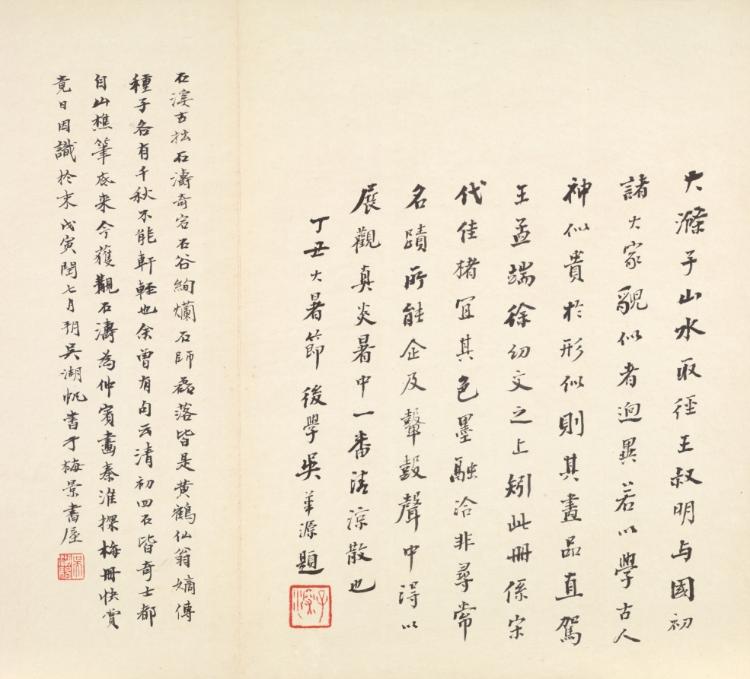 大滌子山水取徑王叔明與國初
諸大家貌似者迥異若以學古人
神似貴於形似則其畫品直駕
王孟端徐幼文之上矧此冊係宋
代佳楮宜其色墨融洽非尋常
名蹟所能企及鼙鼓聲中得以
展觀真炎暑中一番清涼散也
丁丑大暑節後學吳華源題
石溪古拙石濤奇宕石谷絢爛石師磊落皆是黃鶴仙翁嫡傳
種子各有千秋不能軒輊也余曾有句云清初四石皆奇士都
自山樵筆底來今獲觀石濤為仲賓畫秦淮探梅冊快賞
竟日因識於末戊寅閏七月朔吳湖帆書于梅景書屋